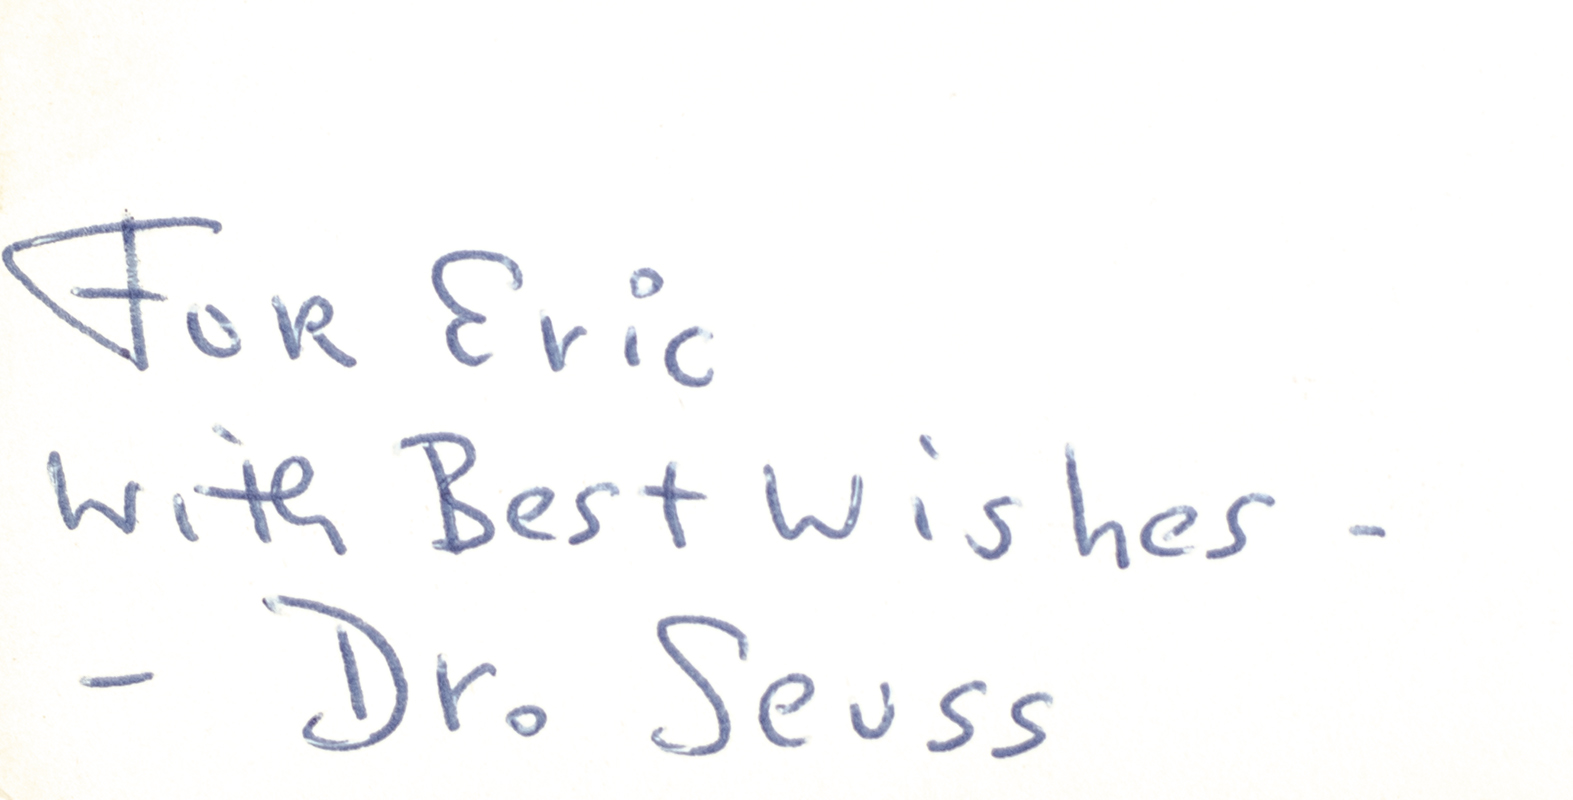 For Eric
with Best Wishes -
- Dr. Seuss